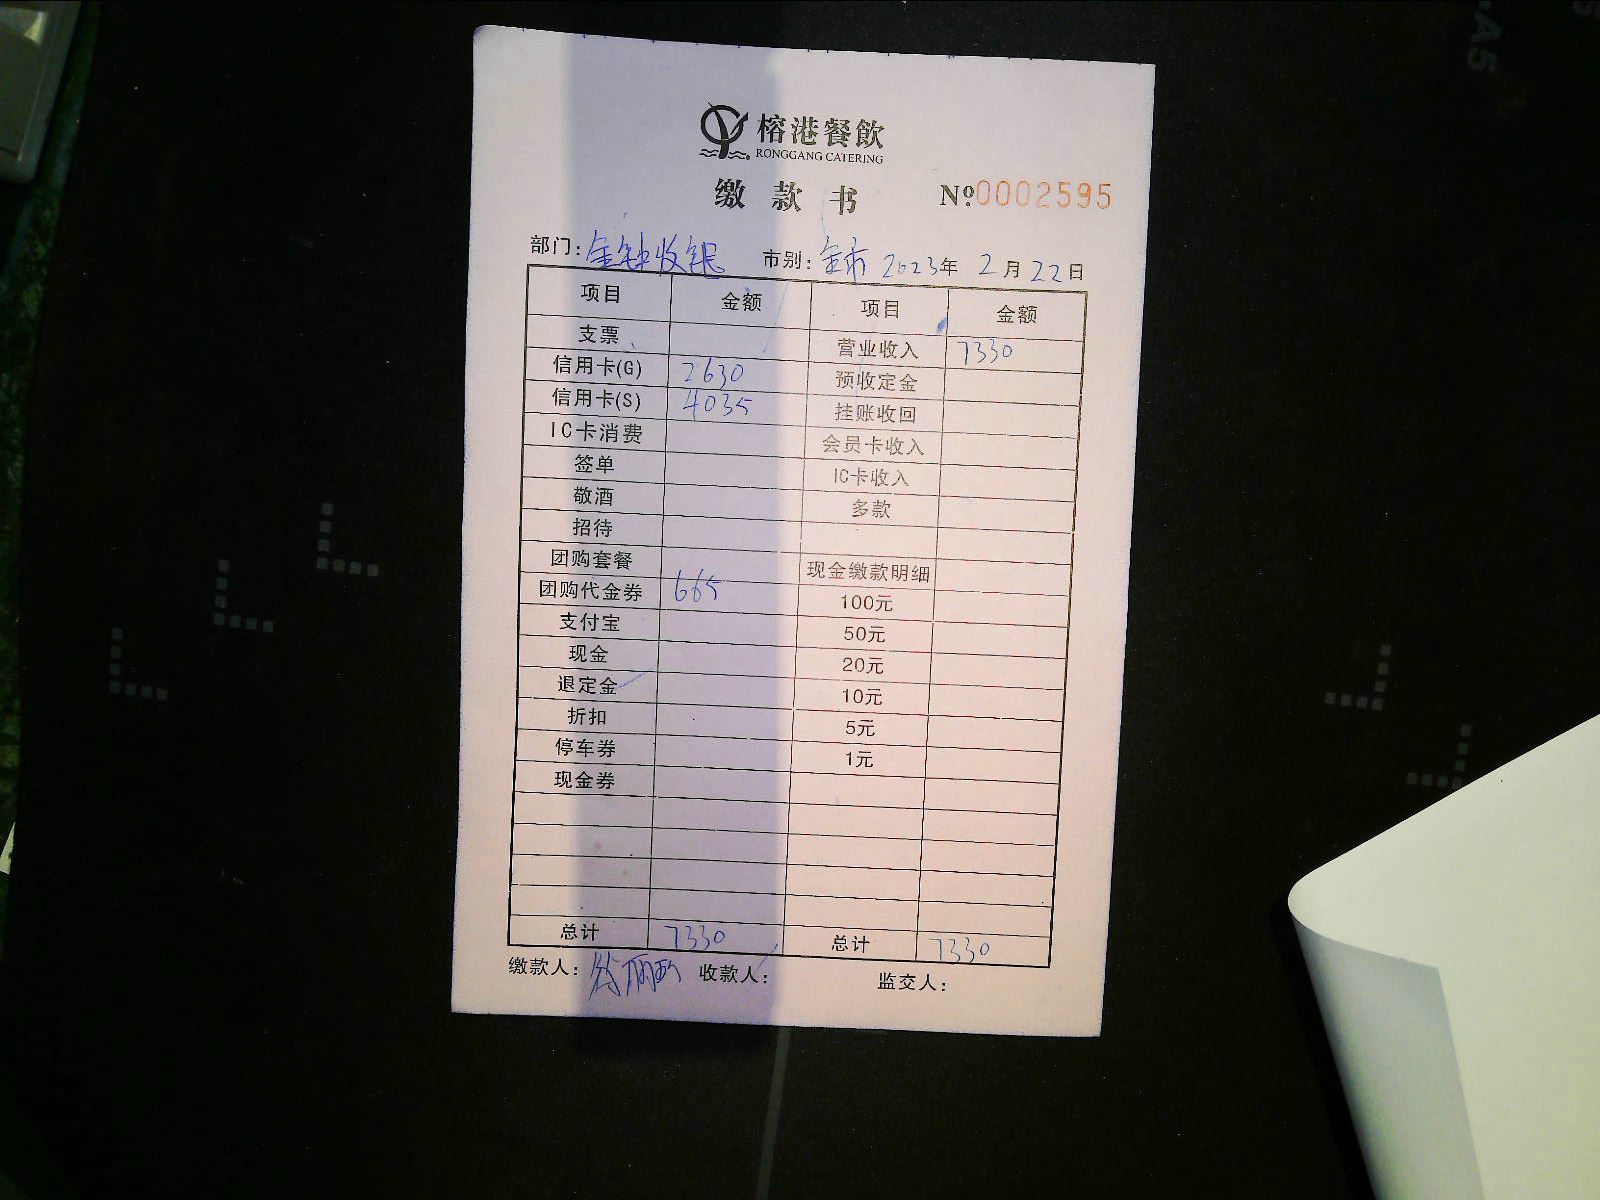 榕港餐飲
RONGGANG CATERING
缴款书 №0002595
部门: 金钟收银 市别: 全市 2023年 2月 22日
项目 金额 项目 金额
支票 营业收入 7330
信用卡(G) 2630 预收定金
信用卡(S) 4035 挂账收回
IC卡消费 会员卡收入
签单 IC卡收入
敬酒 多款
招待
团购套餐 现金缴款明细
团购代金券 665 100元
支付宝 50元
现金 20元
退定金 10元
折扣 5元
停车券 1元
现金券
总计 7330 总计 7330
缴款人: 收款人: 监交人:
-A5